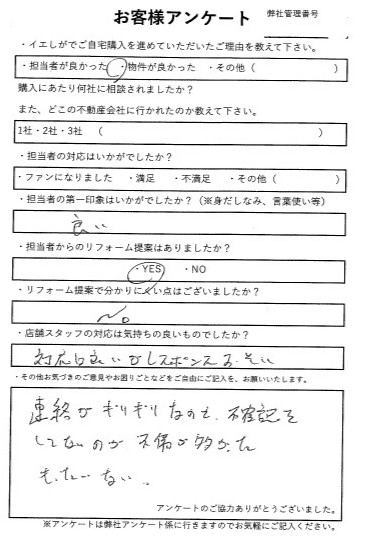 お客様アンケート 弊社管理番号
・イエしがでご自宅購入を進めていただいたご理由を教えて下さい。
・担当者が良かった ・物件が良かった ・その他（ ）
購入にあたり何社に相談されましたか？
また、どこの不動産会社に行かれたのか教えて下さい。
1社・2社・3社 （ ）
・担当者の対応はいかがでしたか？
・ファンになりました ・満足 ・不満足 ・その他（ ）
・担当者の第一印象はいかがでしたか？（※身だしなみ、言葉使い等）
良い
・担当者からのリフォーム提案はありましたか？
・YES ・NO
・リフォーム提案で分かりにくい点はございましたか？
No
・店舗スタッフの対応は気持ちの良いものでしたか？
対応は良いがレスポンスおそい
・その他お気づきのご意見やお困りごとなどをご自由にご記入を、お願いいたします。
連絡がギリギリなのと、不確認を
してないのが 不備が多かった
もったいない。
アンケートのご協力ありがとうございました。
※アンケートは弊社アンケート係に行きますのでお気軽にご記入ください。